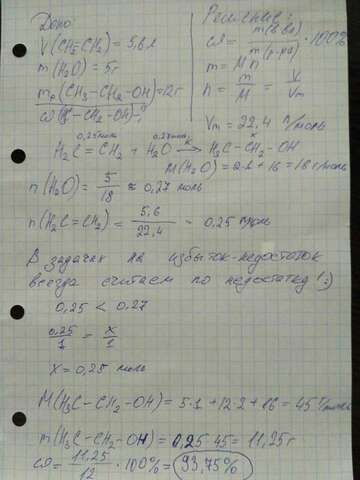 Дано:
V(CH₂=CH₂) = 5,6 л
m(H₂O) = 5 г
mр(CH₃-CH₂-OH) = 12 г
ω(-CH₂-OH)-?
Решение:
ω = m(в-ва) / m(р-ра) · 100%
m = M n
n = m/M = V/Vm
Vm = 22,4 л/моль
0,25 моль 0,27 моль x
H₂C = CH₂ + H₂O → H₃C - CH₂ - OH
M(H₂O) = 2·1 + 16 = 18 г/моль
n(H₂O) = 5/18 ≈ 0,27 моль
n(H₂C=CH₂) = 5,6/22,4 = 0,25 моль
В задачах на избыток-недостаток
всегда считаем по недостатку! :)
0,25 < 0,27
0,25/1 = x/1
x = 0,25 моль
M(H₃C-CH₂-OH) = 5·1 + 12·2 + 16 = 45 г/моль
m(H₃C-CH₂-OH) = 0,25·45 = 11,25 г
ω = 11,25/12 · 100% = 93,75%